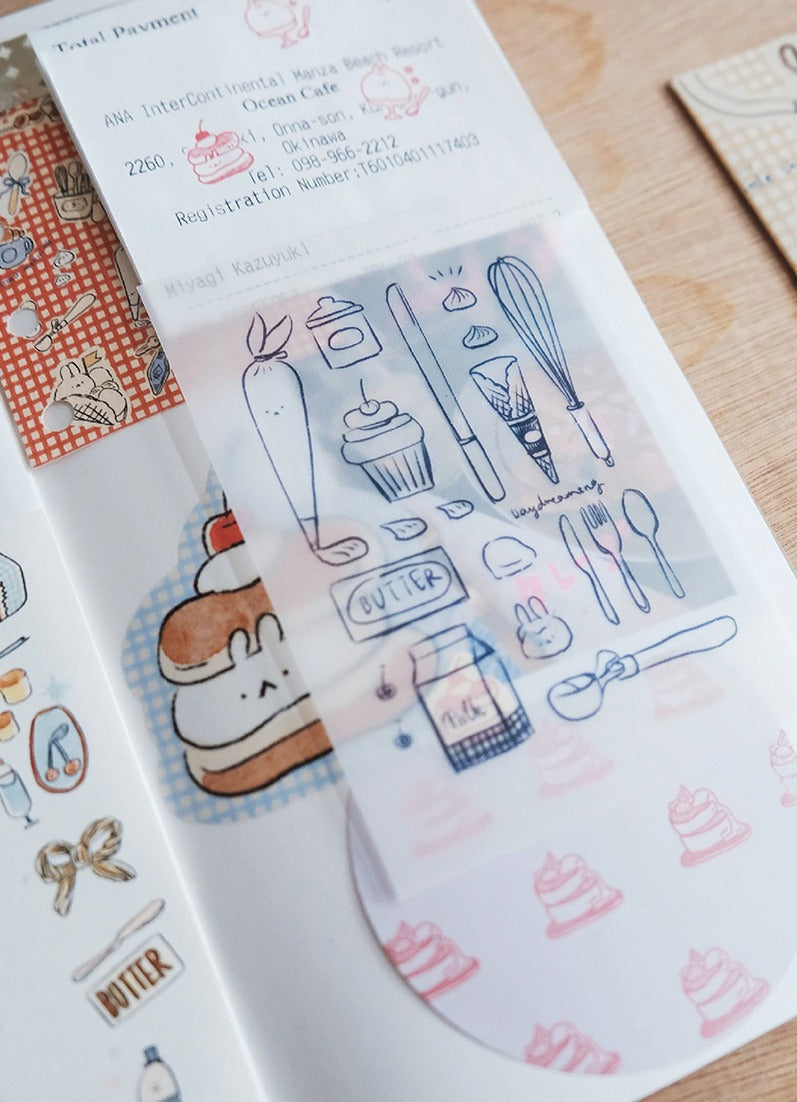 Total Payment
ANA InterContinental Manza Beach Resort
Ocean Cafe
2260, Onna-son, gun,
Okinawa
Tel: 098-966-2212
Registration Number:T6010401117403
Miyagi Kazuyuki
Daydreameng
BUTTER
Milk
BUTTER